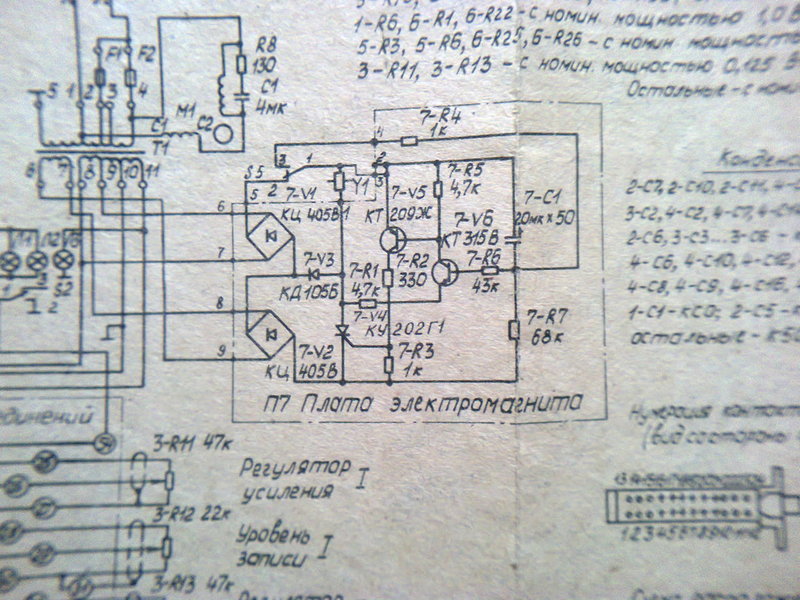 1-R6, 6-R1, 6-R22 - с номин. мощностью 1,0 В
5-R3, 5-R6, 6-R25, 6-R26 - с номин. мощность
3-R11, 3-R13 - с номин. мощностью 0,125 В
Остальные - с номи
F1 F2
R8
130
C1
4мк
5 1 2 3 4
M1
C1 C2
T1
6 7 8 9 10 11
7-R4
1к
4
S5
3 1
5 2
2
3
Y1
7-V1
КЦ 405В
6
7
7-R5
4,7к
7-V5
КТ 209Ж
7-C1
20мк х 50
7-V6
КТ 315В
7-V3
КД105Б
7-R1
4,7к
7-R2
330
7-R6
43к
7-V4
КУ 202Г1
7-R7
68к
8
9
7-V2
КЦ 405В
7-R3
1к
П7 Плата электромагнита
Конденс
2-С7, 2-С10, 2-С11, 4-С
3-С2, 4-С2, 4-С7, 4-С1
2-С6, 3-С3...3-С6 -
4-С6, 4-С10, 4-С12,
4-С8, 4-С9, 4-С16,
1-С1 - КСО; 2-С5 - К
остальные - К50
Нумерация контакт
(вид со стороны
единений
3-R11 47к
Регулятор
усиления I
3-R12 22к
Уровень
записи I
3-R13 47к
Регулятор